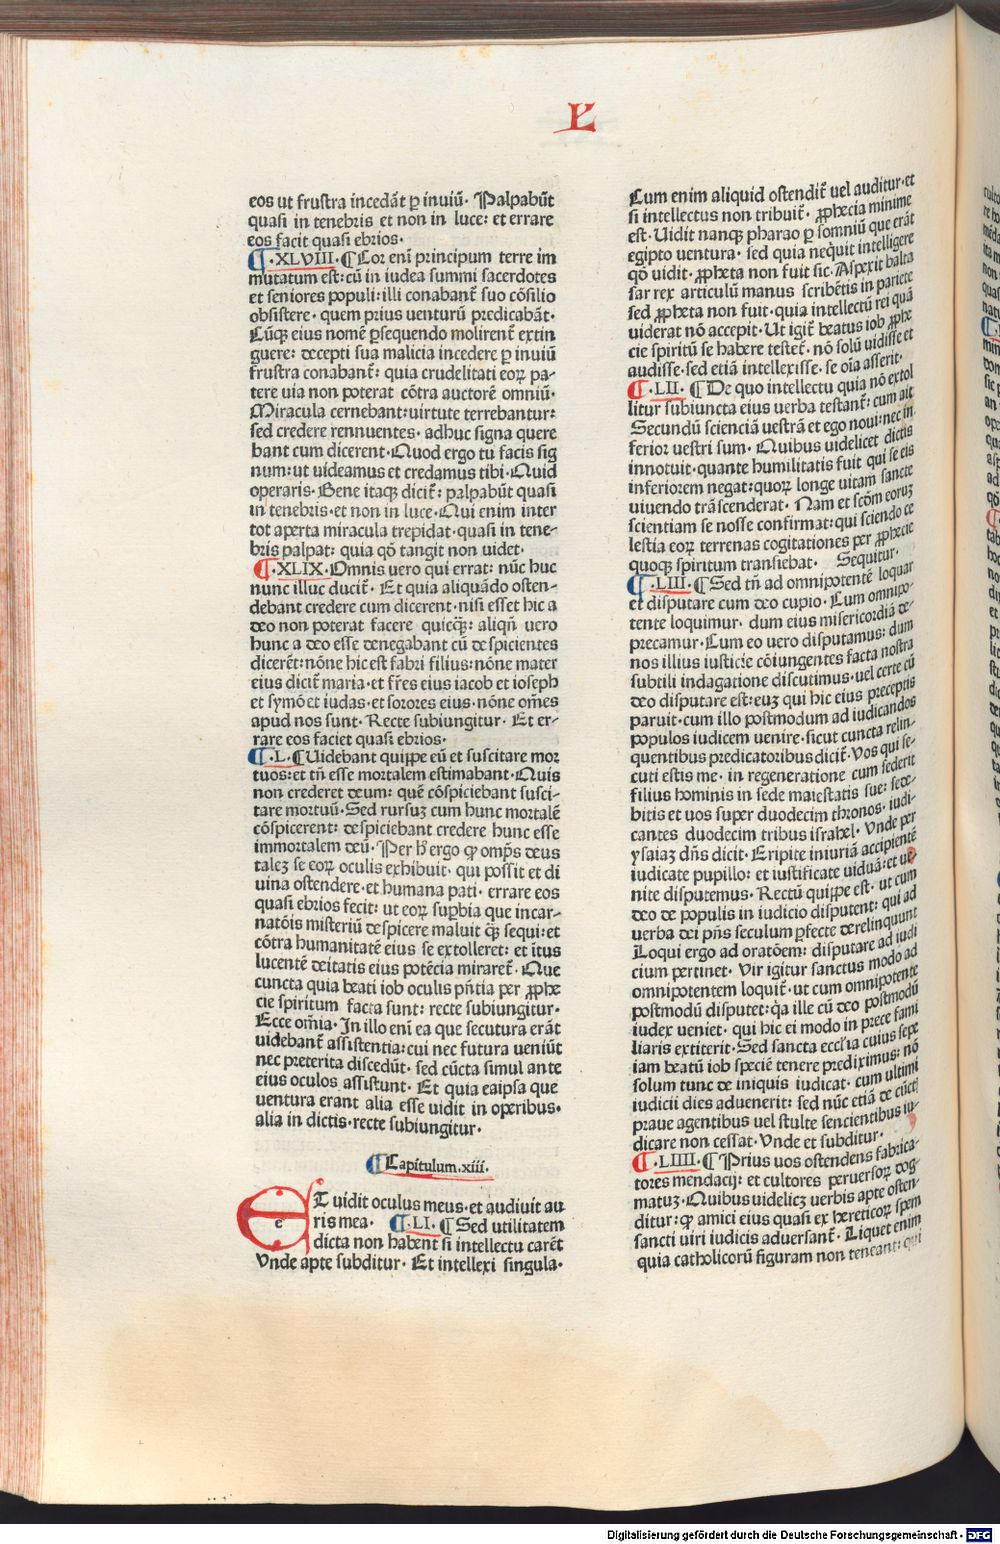 L
eos ut frustra incedāt ꝑ inuiū· Palpabūt
quasi in tenebris et non in luce: et errare
eos facit quasi ebrios·
¶·XLVIII·¶Cor enī principum terre im
mutatum est: cū in iudea summi sacerdotes
et seniores populi: illi conabant̄ suo cōsilio
obsistere· quem prius uenturū predicabāt·
Cūqꝫ eius nomē ꝑsequendo molirent̄ extin
guere: decepti sua malicia incedere ꝑ inuiū
frustra conabant̄: quia crudelitati eoꝝ pa-
tere uia non poterat cōtra auctorē omniū·
Miracula cernebant: uirtute terrebantur:
sed credere rennuentes· adhuc signa quere
bant cum dicerent· Quod ergo tu facis sig
num: ut uideamus et credamus tibi· Quid
operaris· Bene itaqꝫ dicit̄: palpabūt quasi
in tenebris·et non in luce· Qui enim inter
tot aperta miracula trepidat· quasi in tene-
bris palpat: quia qō tangit non uidet·
¶·XLIX·Omnis uero qui errat: nūc huc
nunc illuc ducit̄· Et quia aliquādo osten-
debant credere cum dicerent· nisi esset hic a
deo non poterat facere quicqꝫ: aliqñ uero
hunc a deo esse denegabant cū despicientes
dicerēt: nōne hic est fabri filius: nōne mater
eius dicit̄ maria· et fr̄es eius iacob et ioseph
et symō et iudas· et sorores eius· nōne om̄es
apud nos sunt· Recte subiungitur· Et er-
rare eos faciet quasi ebrios·
¶·L·¶Uidebant quippe eū et suscitare mor
tuos: et tn̄ esse mortalem estimabant· Quis
non crederet deum: quē cōspiciebant susci-
tare mortuū· Sed rursuꝫ cum hunc mortalē
cōspicerent: despiciebant credere hunc esse
immortalem deū· Per h̄ ergo ꝙ omp̄s deus
taleꝫ se eoꝝ oculis exhibuit· qui possit et di
uina ostendere· et humana pati· errare eos
quasi ebrios fecit: ut eoꝝ suꝑbia que incar-
natōis misteriū despicere maluit qꝫ sequi: et
cōtra humanitatē eius se extolleret: et īтus
lucentē deitatis eius potēcia miraret̄· Que
cuncta quia beati iob oculis pn̄tia per ꝓphe
cie spiritum facta sunt: recte subiungitur·
Ecce om̄ia· In illo enī ea que secutura erāt
uidebant̄ assistentia: cui nec futura ueniūt
nec preterita discedūt· sed cūcta simul ante
eius oculos assistunt· Et quia eaipsa que
uentura erant alia esse uidit in operibus·
alia in dictis· recte subiungitur·
¶Capitulum.xiii.
eT uidit oculus meus· et audiuit au
ris mea· ¶·LI·¶Sed utilitatem
dicta non habent si intellectu carēt
Vnde apte subditur· Et intellexi singula·
Cum enim aliquid ostendit̄ uel auditur· et
si intellectus non tribuit̄· ꝓphecia minime
est· Uidit nanqꝫ pharao ꝑ somniū que erāt
egipto uentura· sed quia neqūit intelligere
qō uidit· ꝓpheta non fuit sic· Aspexit balta
sar rex articulū manus scribētis in pariete
sed ꝓpheta non fuit· quia intellectū rei quā
uiderat nō accepit· Ut igit̄ beatus iob ꝓphe
cie spiritū se habere testet̄· nō solū uidisse et
audisse· sed etiā intellexisse· se oīa asserit·
¶·LII·¶De quo intellectu quia nō extol
litur subiuncta eius uerba testant̄: cum ait
Secundū scienciā uestrā et ego noui: nec in
ferior uestri sum· Quibus uidelicet dictis
innotuit· quante humilitatis fuit qui se eis
inferiorem negat: quoꝝ longe uitam sancte
uiuendo trāscenderat· Nam et scōm eoruꝫ
scientiam se nosse confirmat: qui sciendo ce
lestia eoꝝ terrenas cogitationes per ꝓphecie
quoqꝫ spiritum transiebat· Sequitur·
¶·LIII·¶Sed tn̄ ad omnipotentē loquar
et disputare cum deo cupio· Cum omnipo-
tente loquimur· dum eius misericordiā de-
precamur· Cum eo uero disputamus: dum
nos illius iusticie cōiungentes facta nostra
subtili indagatione discutimus· uel certe cū
deo disputare est: euꝫ qui hic eius preceptis
paruit· cum illo postmodum ad iudicandos
populos iudicem uenire· sicut cuncta relin-
quentibus predicatoribus dicit̄· Vos qui se-
cuti estis me· in regeneratione cum sederit
filius hominis in sede maiestatis sue: sede-
bitis et uos super duodecim thronos· iudi-
cantes duodecim tribus israhel· Vnde per
ysaiaꝫ dn̄s dicit· Eripite iniuriā accipientē
iudicate pupillo: et iustificate uiduā: et ue-
nite disputemus· Rectū quippe est· ut cum
deo de populis in iudicio disputent: qui ad
uerba dei pn̄s seculum ꝑfecte derelinquunt
Loqui ergo ad oratōem: disputare ad iudi
cium pertinet· Vir igitur sanctus modo ad
omnipotentem loquit̄· ut cum omnipotente
postmodū disputet: qa ille cū deo postmodū
iudex ueniet· qui hic ei modo in prece fami
liaris extiterit· Sed sancta eccl'ia cuius sepe
iam beatū iob speciē tenere prediximus: nō
solum tunc de iniquis iudicat· cum ultimi
iudicii dies aduenerit: sed nūc etiā de cūct̄
praue agentibus uel stulte sencientibus iu-
dicare non cessat· Vnde et subditur·
¶·LIIII·¶Prius uos ostendens fabrica-
tores mendacij: et cultores peruersoꝝ dog-
matuꝫ· Quibus uidelicꝫ uerbis apte osten-
ditur: ꝙ amici eius quasi ex hereticoꝝ spem
sancti uiri iudicis aduersant̄· Liquet enim
quia catholicorū figuram non teneant: qui
Digitalisierung gefördert durch die Deutsche Forschungsgemeinschaft - DFG